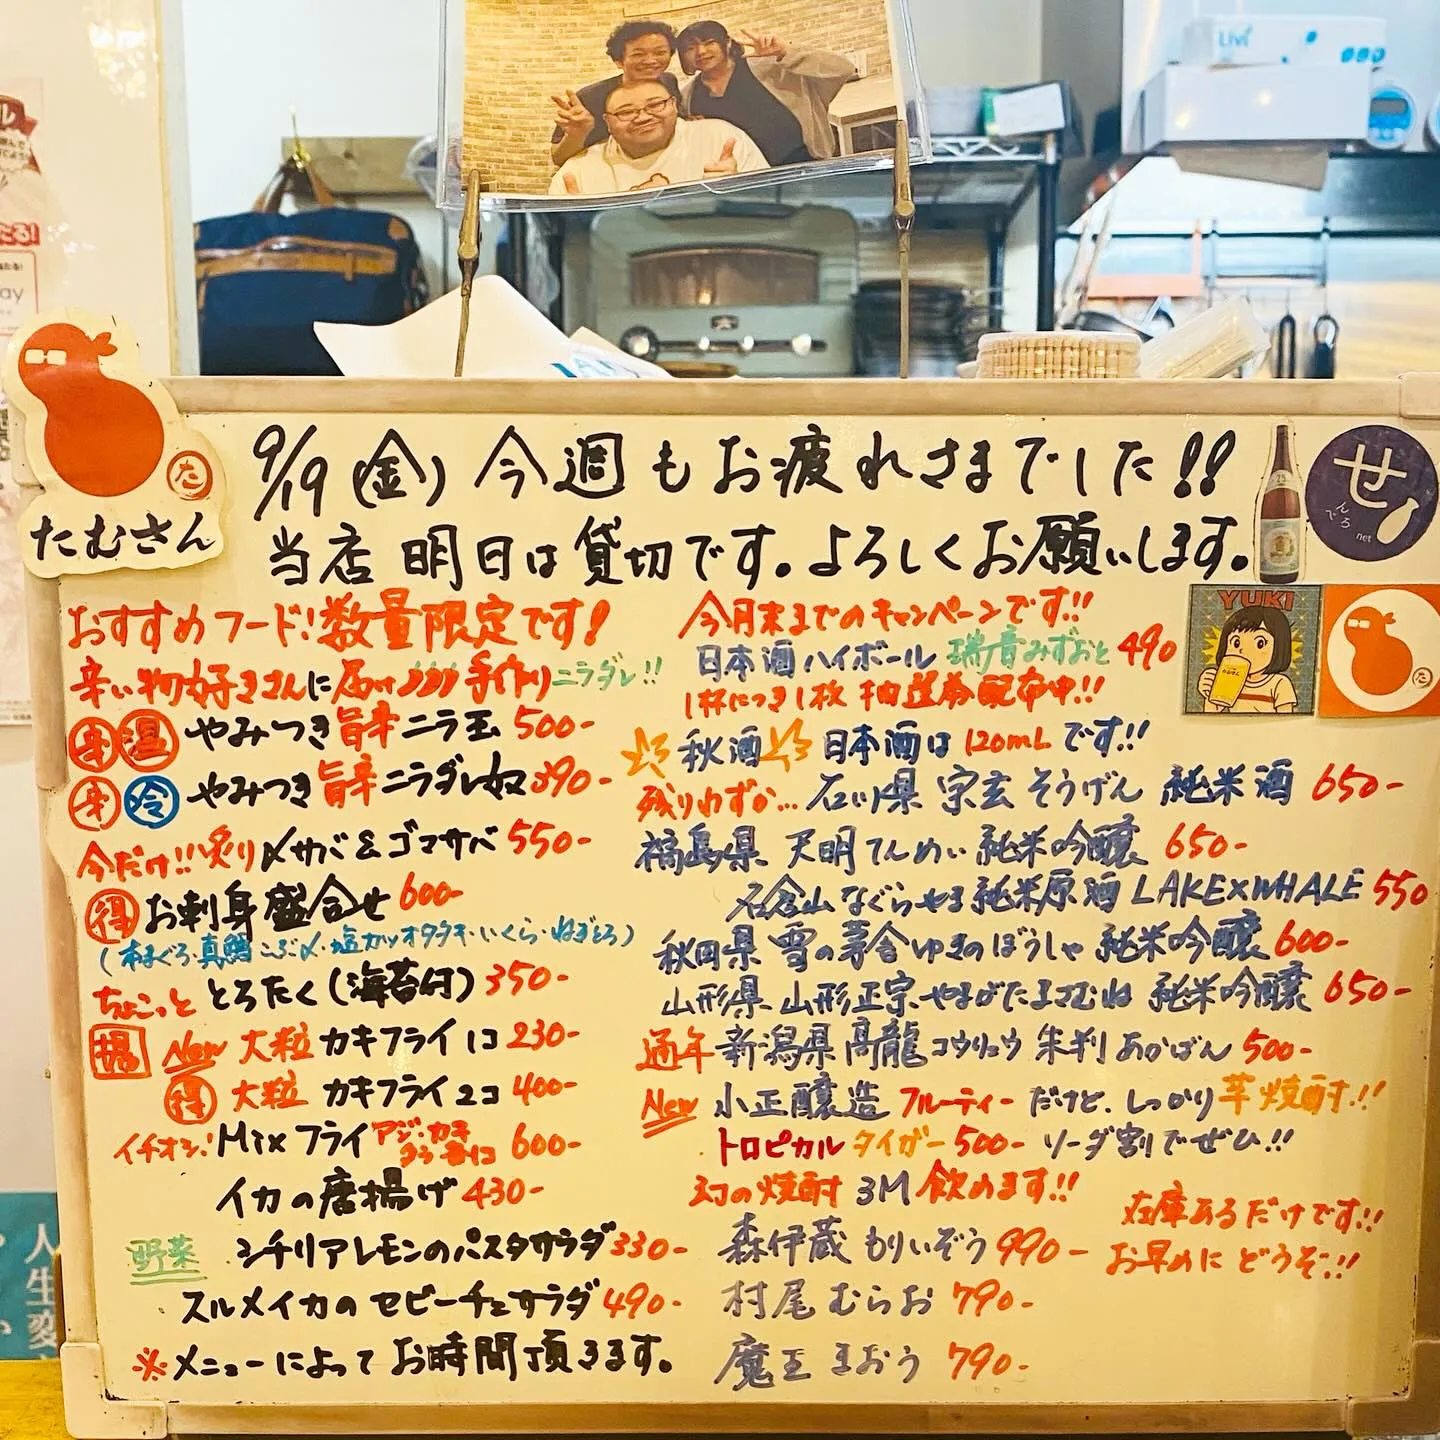 Livi
たむさん
た
9/19(金)今週もお疲れさまでした!!
当店 明日は貸切です。よろしくお願いします。
せ
んろ
net
YUKI
た
おすすめフード!数量限定です!
辛い物好きさんに届け))))手作りニラダレ!!
辛 温 やみつき旨辛ニラ玉 500-
辛 冷 やみつき旨辛ニラダレ奴 390-
今だけ!!炙り〆サバ&ゴマサバ 550-
得 お刺身盛合せ 600-
(本まぐろ・真鯛こぶ〆・塩カツオタタキ・いくら・ねぎとろ)
ちょこっと とろたく(海苔付) 350-
揚 New 大粒 カキフライ 1コ 230-
得 大粒 カキフライ 2コ 400-
イチオシ! Mixフライ アジ・カキ 600-
イカの唐揚げ 430-
野菜 シチリアレモンのパスタサラダ 330-
スルメイカのセビーチェサラダ 490-
※メニューによってお時間頂きます。
今月末までのキャンペーンです!!
日本酒ハイボール 瑞音みずおと 490
1杯につき1枚 抽選券配布中!!
秋酒 日本酒は 120mL です!!
残りわずか… 石川県 宗玄 そうげん 純米酒 650-
福島県 天明 てんめい 純米吟醸 650-
石倉山 なぐらやま 純米原酒 LAKE×WHALE 550
秋田県 雪の茅舎 ゆきのぼうしゃ 純米吟醸 600-
山形県 山形正宗 やまがたまさむね 純米吟醸 650-
通年 新潟県 高龍 コウリュウ 朱判 あかばん 500-
New 小正醸造 フルーティーだけど、しっかり芋焼酎!!
トロピカルタイガー 500- ソーダ割でぜひ!!
幻の焼酎 3M 飲めます!!
森伊蔵 もりいぞう 990-
村尾 むらお 790-
魔王 まおう 790-
在庫あるだけです!!
お早めにどうぞ!!
人生変